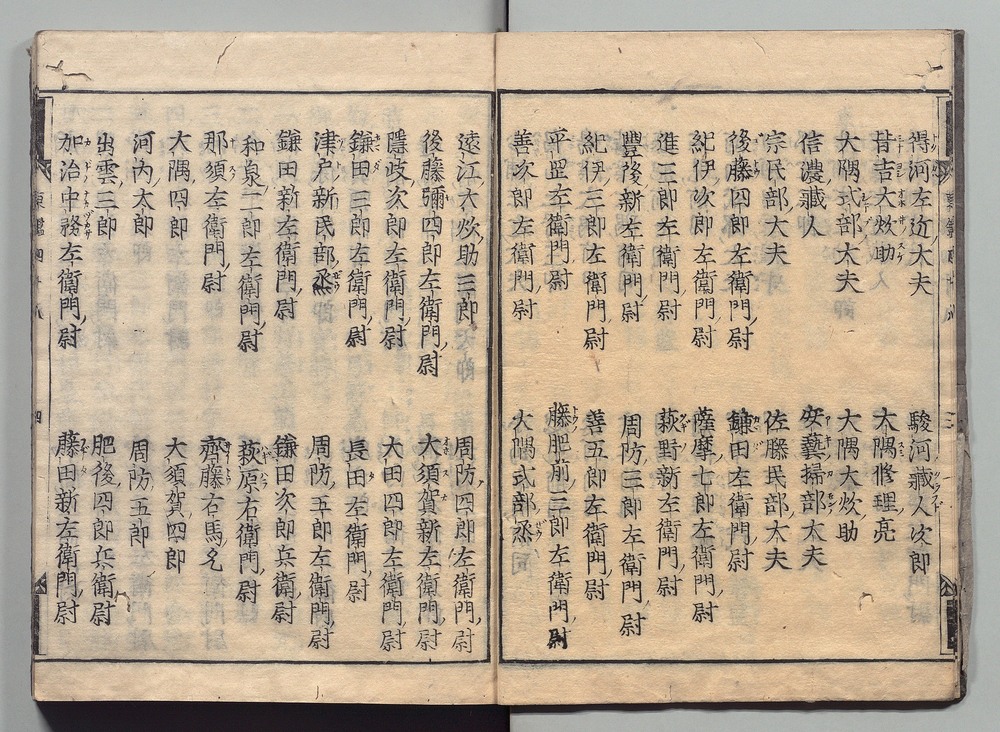 得河左近大夫
駿河藏人次郎
皆吉大炊助
大隅修理亮
大隅式部大夫
大隅大炊助
信濃藏人
安藝掃部大夫
宗民部大夫
佐藤民部大夫
後藤四郎左衛門尉
鎌田左衛門尉
紀伊次郎左衛門尉
薩摩七郎左衛門尉
進三郎左衛門尉
荻野新左衛門尉
豐後新左衛門尉
周防三郎左衛門尉
紀伊三郎左衛門尉
善五郎左衛門尉
平岡左衛門尉
藤肥前三郎左衛門尉
善次郎左衛門尉
大隅式部丞
遠江大炊助三郎
周防四郎左衛門尉
後藤彌四郎左衛門尉
大須賀新左衛門尉
隱政次郎左衛門尉
大田四郎左衛門尉
鎌田三郎左衛門尉
長田左衛門尉
津戸新民部丞
周防五郎左衛門尉
鎌田新左衛門尉
鎌田次郎兵衛尉
和泉二郎左衛門尉
荻原右衛門尉
那須左衛門尉
齊藤右馬允
大隅四郎左衛門尉
大須賀四郎
河内太郎
周防五郎
出雲三郎
肥後四郎兵衛尉
加治中務左衛門尉
藤田新左衛門尉
四